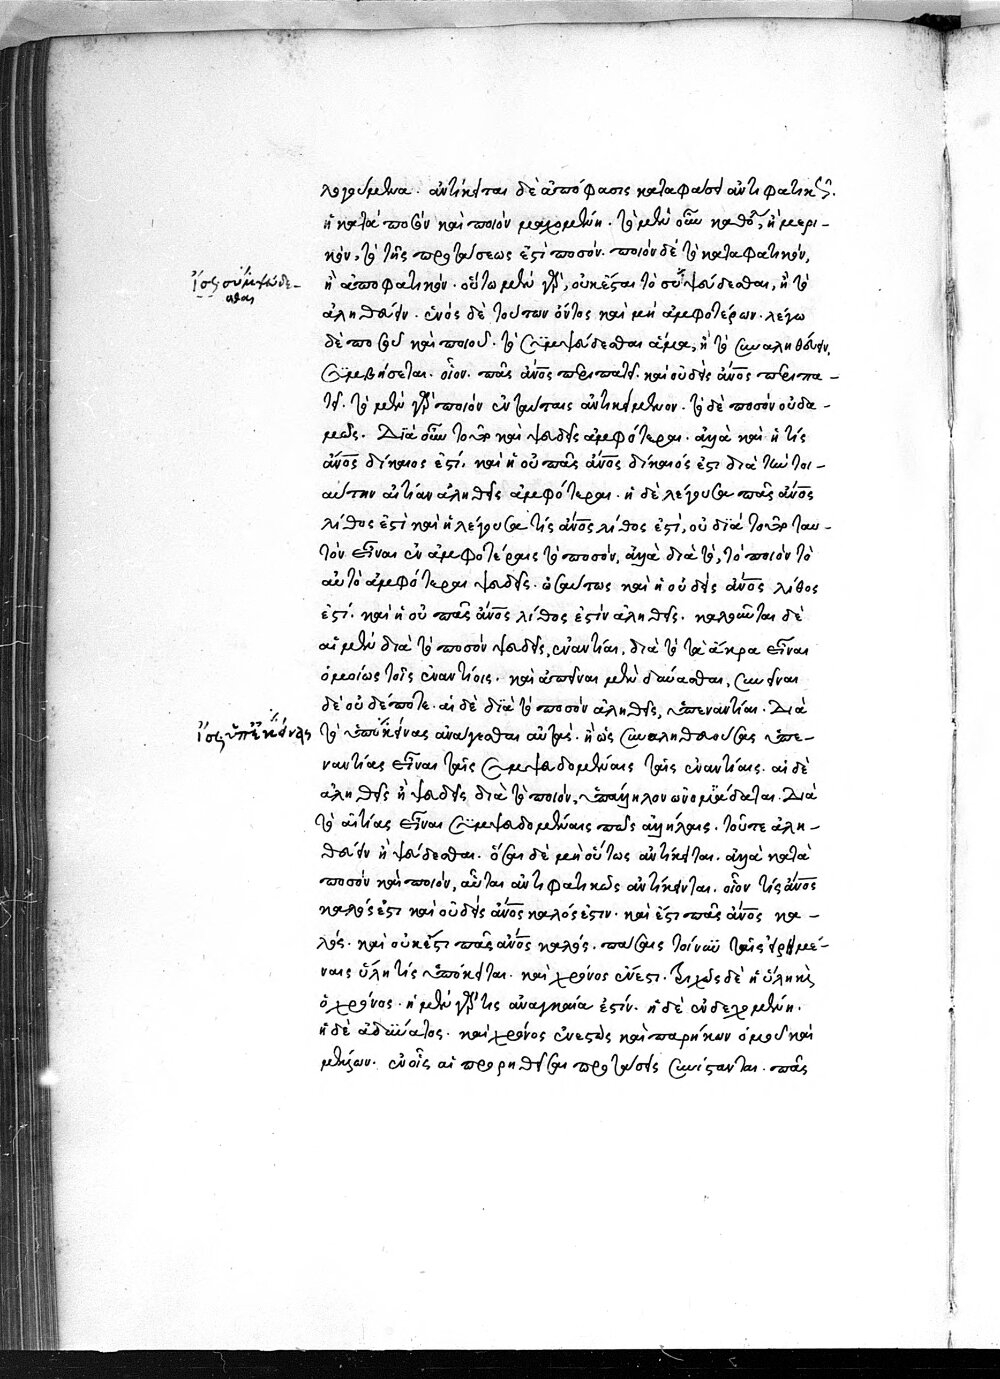 λεγόμενα. ἀντίκειται δὲ ἀπόφασις καταφάσει ἀντιφατικῶς.
ἢ κατὰ ποσὸν καὶ ποιὸν μαχομένη. τὸ μὲν οὖν καθόλου, ἢ μερι-
κὸν, τὸ τῆς προτάσεως ἐστὶ ποσόν. ποιὸν δὲ τὸ καταφατικὸν,
ἢ ἀποφατικόν. οὕτω μὲν γὰρ, οὐκ ἔσται τὸ συμψεύδεσθαι, ἢ τὸ
ἴσως συμψεύδε-
σθαι
ἀληθεύειν. ἑνὸς δὲ τούτων ὄντος καὶ μὴ ἀμφοτέρων. λέγω
δὲ ποσοῦ καὶ ποιοῦ. τὸ συμψεύδεσθαι ἅμα, ἢ τὸ συναληθεύειν,
συμβήσεται. οἷον. πᾶς ἄνος περιπατεῖ. καὶ οὐδεὶς ἄνος περιπα-
τεῖ. τὸ μὲν γὰρ ποιὸν ἐν ταύταις ἀντικείμενον. τὸ δὲ ποσὸν οὐδα-
μῶς. Διὰ οὖν τοῦτο καὶ ψευδεῖς ἀμφότεραι. ἀλλὰ καὶ ἡ τίς
ἄνος δίκαιος ἐστί. καὶ ἡ οὐ πᾶς ἄνος δίκαιός ἐστι διὰ τὴν τοι-
αύτην αἰτίαν ἀληθεῖς ἀμφότεραι. ἡ δὲ λέγουσα πᾶς ἄνος
λίθος ἐστὶ καὶ ἡ λέγουσα τίς ἄνος λίθος ἐστὶ, οὐ διὰ τοῦτο ταυ-
τὸν εἶναι ἐν ἀμφοτέραις τὸ ποσόν, ἀλλὰ διὰ τὸ, τὸ ποιὸν τὸ
αὐτὸ ἀμφότεραι ψευδεῖς. ὡσαύτως καὶ ἡ οὐδεὶς ἄνος λίθος
ἐστί. καὶ ἡ οὐ πᾶς ἄνος λίθος ἐστὶν ἀληθεῖς. καλοῦνται δὲ
αἱ μὲν διὰ τὸ ποσὸν ψευδεῖς, ἐναντίαι, διὰ τὸ τὰ ἄκρα εἶναι
ὁμοίως τοῖς ἐναντίοις. καὶ ἀπεῖναι μὲν δύνασθαι, συνεῖναι
δὲ οὐδέποτε. αἱ δὲ διὰ τὸ ποσὸν ἀληθεῖς, ὑπεναντίαι. Διὰ
τὸ ὑπ' κείνας ἀνάγεσθαι αὐτάς. ἢ ὡς συναληθευούσας ὑπε-
ἴσως ὑπ' ἐκείνας
ναντίας εἶναι ταῖς συμψευδομέναις ταῖς ἐναντίαις. αἱ δὲ
ἀληθεῖς ἢ ψευδεῖς διὰ τὸ ποιὸν, ὑπάλληλον ὠνομάδαται. Διὰ
τὸ αἰτίας εἶναι συμψευδομέναις πως ἀλλήλαις. τοῦτε ἀλη-
θεύειν ἢ ψεύδεσθαι. ὅσαι δὲ μὴ οὕτως ἀντίκεινται. ἀλλὰ κατὰ
ποσὸν καὶ ποιὸν, αὗται ἀντιφατικῶς ἀντίκεινται. οἷον τίς ἄνος
καλός ἐστι καὶ οὐδεὶς ἄνος καλός ἐστιν. καὶ ἔστι πᾶς ἄνος κα-
λός. καὶ οὐκ ἔστι πᾶς ἄνος καλός. πάσαις τοίνυν ταῖς εἰρημέ-
ναις ὕλη τίς ὑπόκειται. καὶ χρόνος ἔνεστι. Τριχῶς δὲ ἡ ὕλη καὶ
ὁ χρόνος. ἡ μὲν γάρ τις ἀναγκαία ἐστίν. ἡ δὲ ἐνδεχομένη.
ἡ δὲ ἀδύνατος. καὶ χρόνος ἐνεστὼς καὶ παρῄκων ὁμοῦ καὶ
μέλλων. ἐν οἷς αἱ προρηθεῖσαι προτάσεις συνίστανται. πᾶς